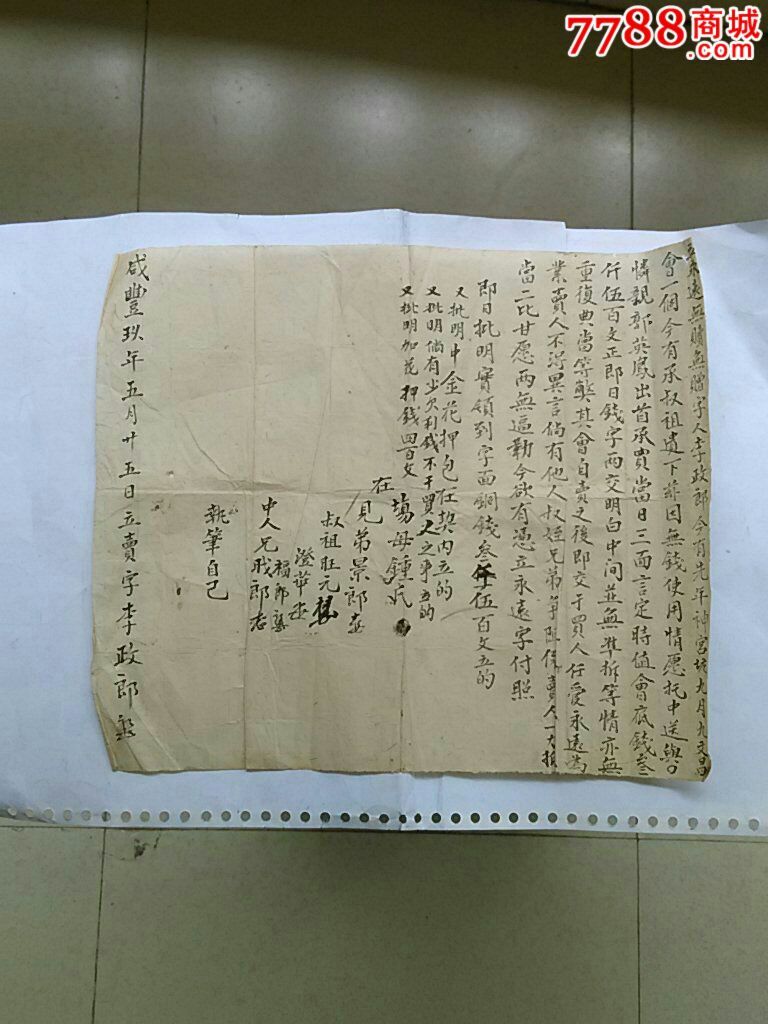 7788商城
.com
永遠無贖無贈字人李政郎今有先年神宮坑九月九文昌
會一個今有承叔祖遺下茲因無錢使用情愿托中送與
憐親郭英鳳出首承買當日三面言定時值會底錢叁
仟伍百文正即日錢字兩交明白中间並無準拆等情亦無
重復典當等弊其會自賣之後即交于買人任愛永遠為
業賣人不得異言倘有他人叔姪兄弟爭阻係賣人一力抵
當二比甘愿兩無逼勒今欲有憑立永遠字付照
即日批明實領到字面銅錢叁仟伍百文立的
又批明中金花押包在契內立的
又批明倘有少欠利錢不干買人之事立的
又批明加花押錢四百文
在場母鍾氏
見弟景郎
叔祖旺元
澄華
福郎
中人兄戕郎
執筆自己
咸豐玖年五月廿五日立賣字李政郎